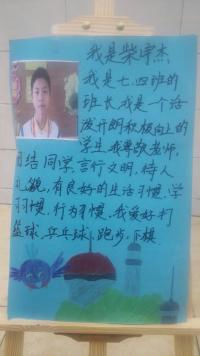 我是柴宇杰
我是七.四班的
班长,我是一个活
泼开朗积极向上的
学生,我尊敬老师,
团结同学,言行文明,待人
礼貌,有良好的生活习惯,学
习习惯,行为习惯,我爱好打
篮球,乒乓球,跑步,下棋.